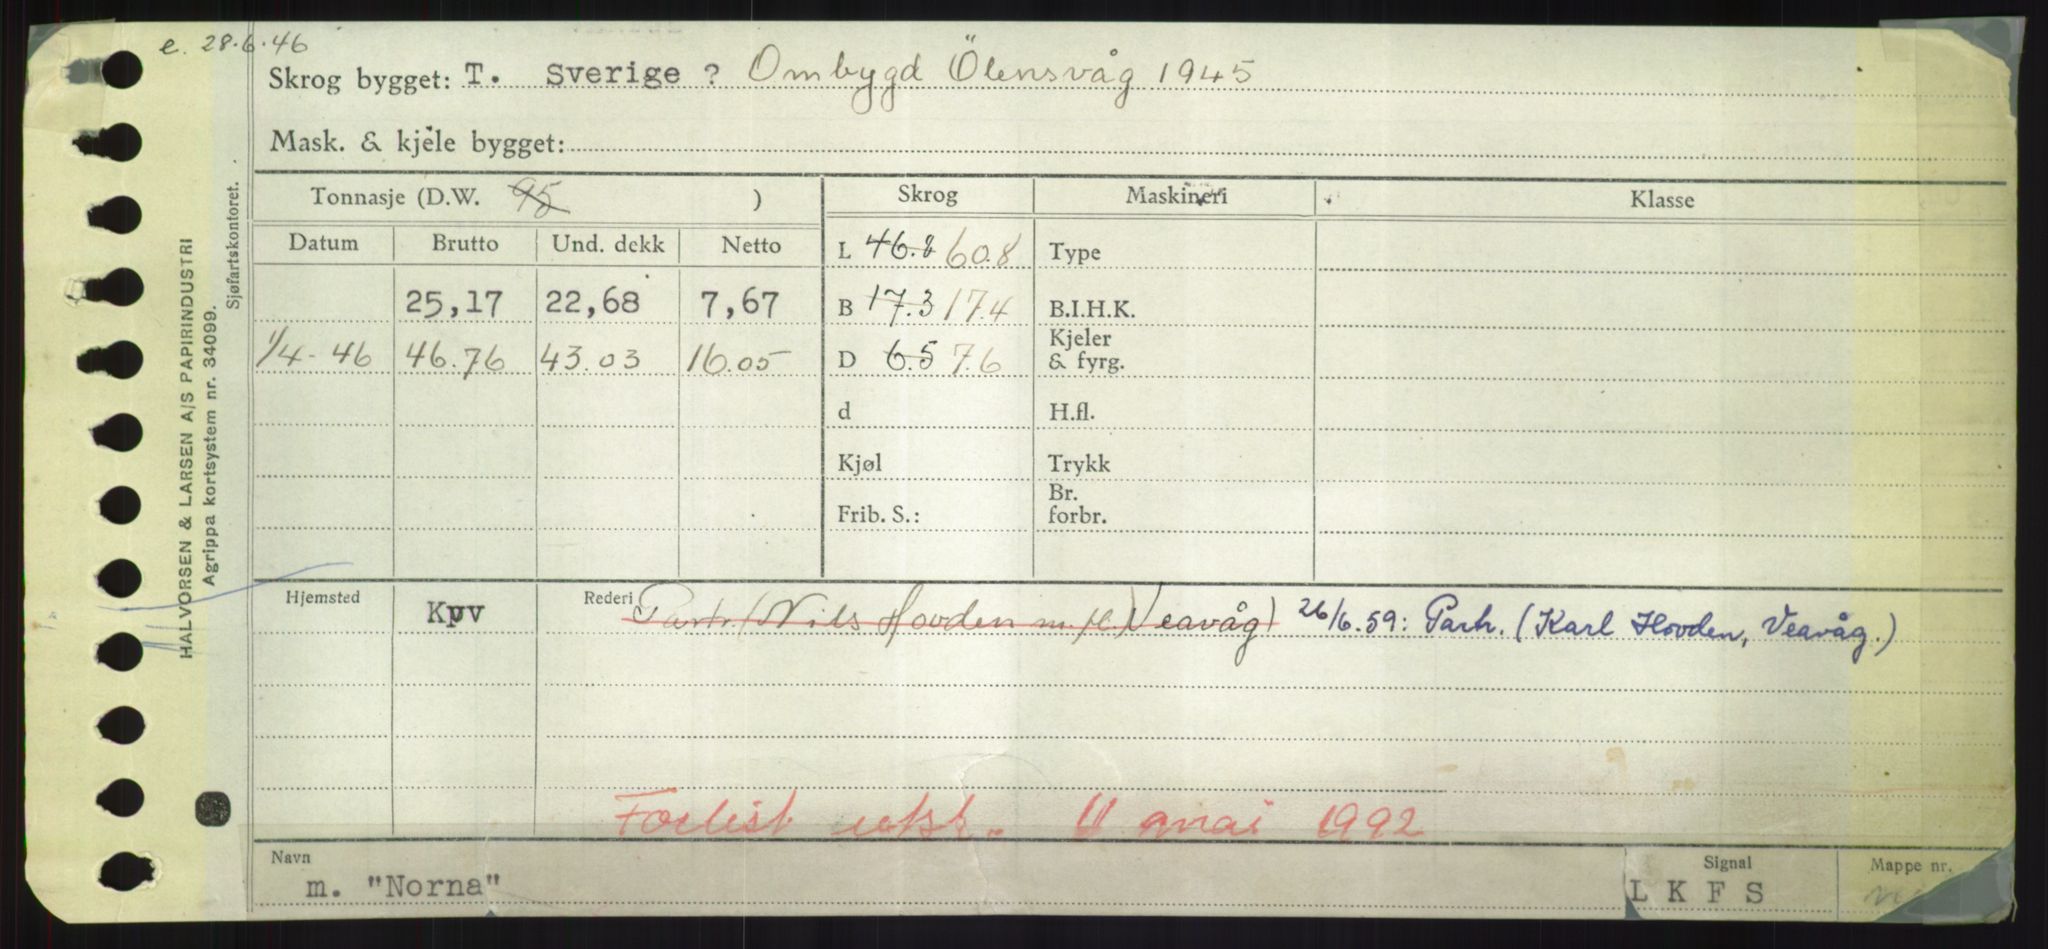 e. 28.6.46
Skrog bygget: T. Sverige ? Ombygd Ölensvåg 1945
Mask. & kjele bygget:
Tonnasje (D.W. 95 ) Skrog Maskineri Klasse
Datum Brutto Und. dekk Netto L 46.8 60.8 Type
25,17 22,68 7,67 B 17.3 17.4 B.I.H.K.
1/4-46 46.76 43.03 16.05 D 6.5 7.6 Kjeler & fyrg.
d H.fl.
Kjøl Trykk
Frib. S.: Br. forbr.
Hjemsted Kpv Rederi Partr. (Nils Hovden m. fl.) Veavåg) 26/6.59: Partr. (Karl Hovden, Veavåg.)
Forlist 11 mai 1992
Navn Signal Mappe nr.
m. "Norna" L K F S
HALVORSEN & LARSEN A/S PAPIRINDUSTRI
Agrippa kortsystem nr. 34099.
Sjøfartskontoret.